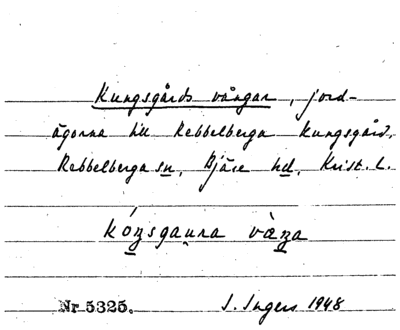 Kungsgårds vångar, jord-
ägorna till Rebbelberga Kungsgård,
Rebbelberga sn, Bjäre hd, Krist. L.
Nr 5325. I. Ingers 1948